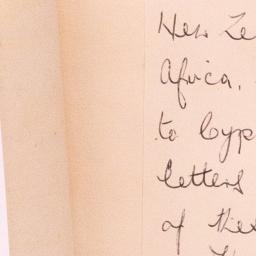 New Ze
Africa,
to Cyp
letters
of thes